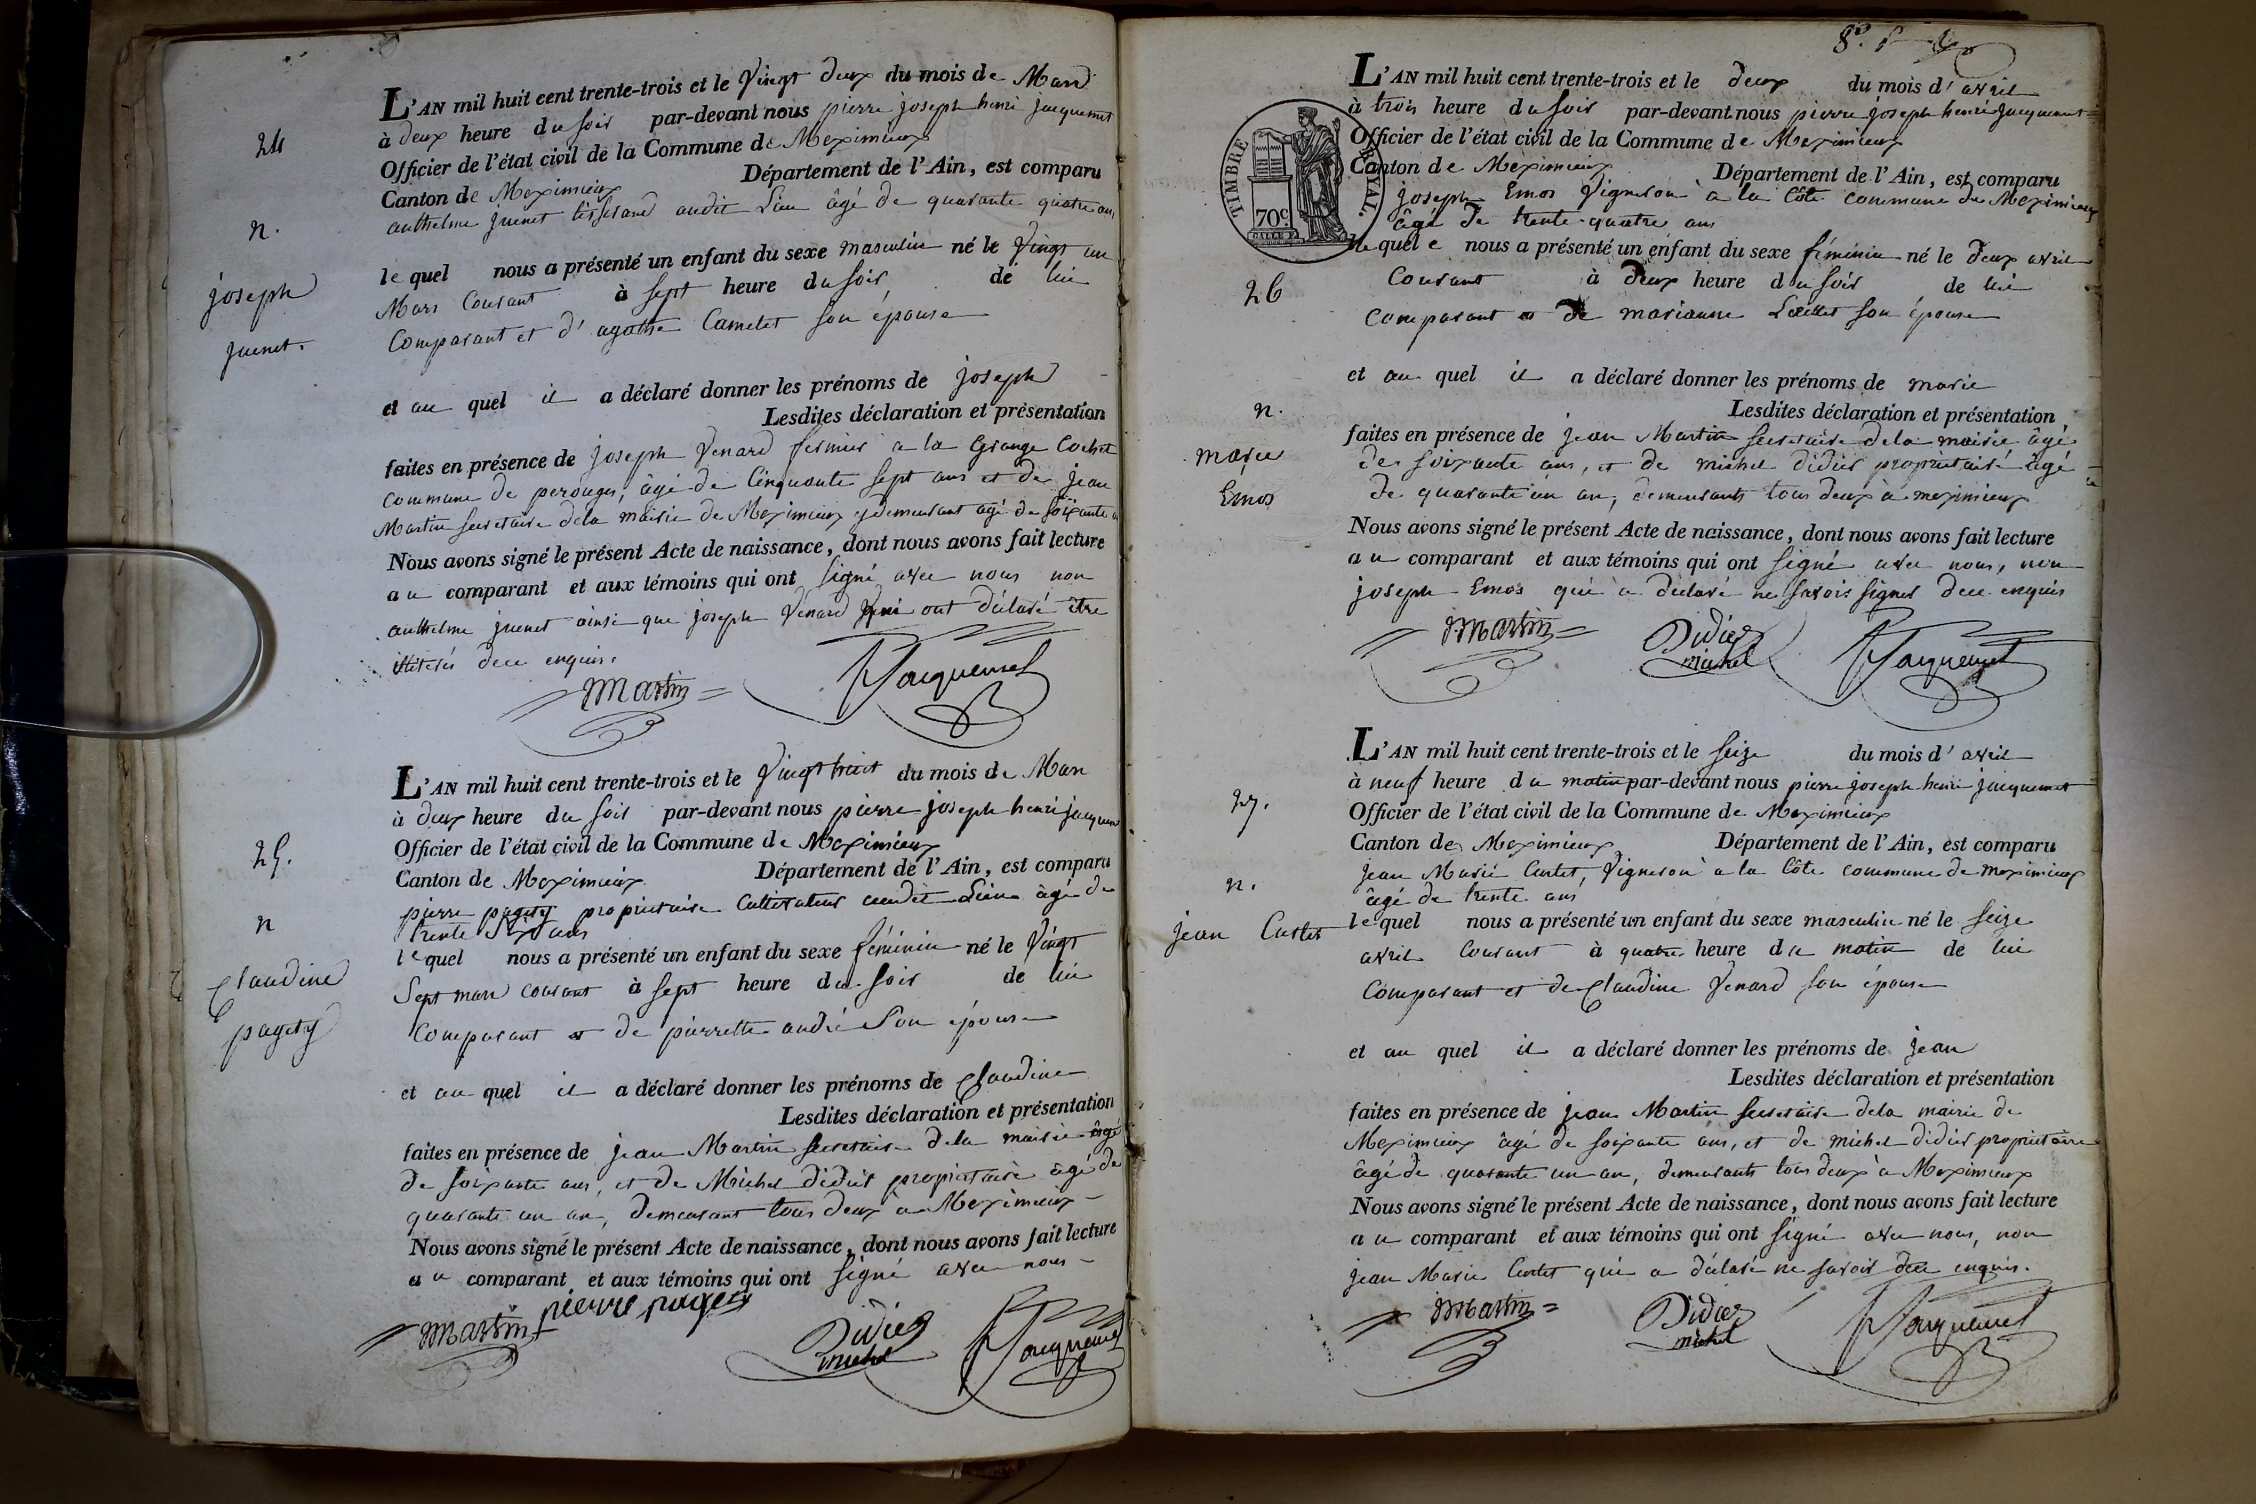 24
n.
joseph
juenet.
L'AN mil huit cent trente-trois et le Vingt deux du mois de Mars
à deux heure du soir par-devant nous pierre joseph henri jacquemet
Officier de l'état civil de la Commune de Meximieux
Canton de Meximieux Département de l'Ain, est comparu
anthelme juenet tisserand audit Lieu âgé de quarante quatre ans
lequel nous a présenté un enfant du sexe masculin né le Vingt un
Mars Courant à sept heure du soir de lui
Comparant et d'agathe Camelet son épouse
et au quel il a déclaré donner les prénoms de joseph
Lesdites déclaration et présentation
faites en présence de joseph Venard fermier a la Grange Cochet
commune de perouges, âgé de Cinquante sept ans et de jean
Martin secretaire dela mairie de Meximieux y demeurant agé de soixante
Nous avons signé le présent Acte de naissance, dont nous avons fait lecture
au comparant et aux témoins qui ont signé avec nous non
anthelme juenet ainsi que joseph Venard qui ont déclaré être
illiterés dece enquis.
Martin Jacquemet
25.
n
Claudine
pagety
L'AN mil huit cent trente-trois et le Vingt huit du mois de Mars
à deux heure du soir par-devant nous pierre joseph henri jacquemet
Officier de l'état civil de la Commune de Meximieux
Canton de Meximieux Département de l'Ain, est comparu
pierre pagety propriétaire Cultivateur audit Lieu âgé de
trente Six ans
lequel nous a présenté un enfant du sexe féminin né le Vingt
Sept mars courant à sept heure du soir de lui
Comparant et de pierrette andré Son épouse
et au quel il a déclaré donner les prénoms de Claudine
Lesdites déclaration et présentation
faites en présence de jean Martin secretaire dela mairie âgé
de soixante ans, et de Michel didier propriétaire âgé de
quarante un an, demeurant tous deux à Meximieux
Nous avons signé le présent Acte de naissance, dont nous avons fait lecture
au comparant et aux témoins qui ont signé avec nous
Martin pierre pagety Didier michel Jacquemet
TIMBRE ROYAL.
70c.
26
n.
marie
Emos
L'AN mil huit cent trente-trois et le deux du mois d'avril
à trois heure du soir par-devant nous pierre joseph henri jacquemet
Officier de l'état civil de la Commune de Meximieux
Canton de Meximieux Département de l'Ain, est comparu
joseph Emos Vigneron à la Côte commune de Meximieux
âgé de trente-quatre ans
lequel e nous a présenté un enfant du sexe féminin né le deux avril
Courant à deux heure du soir de lui
Comparant et de marianne Lœillet son épouse
et au quel il a déclaré donner les prénoms de marie
Lesdites déclaration et présentation
faites en présence de jean Martin secretaire dela mairie âgé
de soixante ans, et de michel didier propriétaire âgé
de quarante un an, demeurants tous deux à meximieux
Nous avons signé le présent Acte de naissance, dont nous avons fait lecture
au comparant et aux témoins qui ont signé avec nous, non
joseph Emos qui à déclaré ne savoir signer dece enquis
Martin Didier michel Jacquemet
27.
n.
jean Curtet
L'AN mil huit cent trente-trois et le seize du mois d'avril
à neuf heure du matin par-devant nous pierre joseph henri jacquemet
Officier de l'état civil de la Commune de Meximieux
Canton de Meximieux Département de l'Ain, est comparu
jean Marie Curtet, Vigneron à la Côte commune de meximieux
âgé de trente ans
lequel nous a présenté un enfant du sexe masculin né le seize
avril Courant à quatre heure du matin de lui
Comparant et de Claudine Venard son épouse
et au quel il a déclaré donner les prénoms de jean
Lesdites déclaration et présentation
faites en présence de jean Martin secretaire dela mairie de
Meximieux âgé de soixante ans, et de michel didier propriétaire
âgé de quarante un an, demeurants tous deux à Meximieux
Nous avons signé le présent Acte de naissance, dont nous avons fait lecture
au comparant et aux témoins qui ont signé avec nous, non
jean Marie Curtet qui a déclaré ne savoir dece enquis.
Martin Didier michel Jacquemet